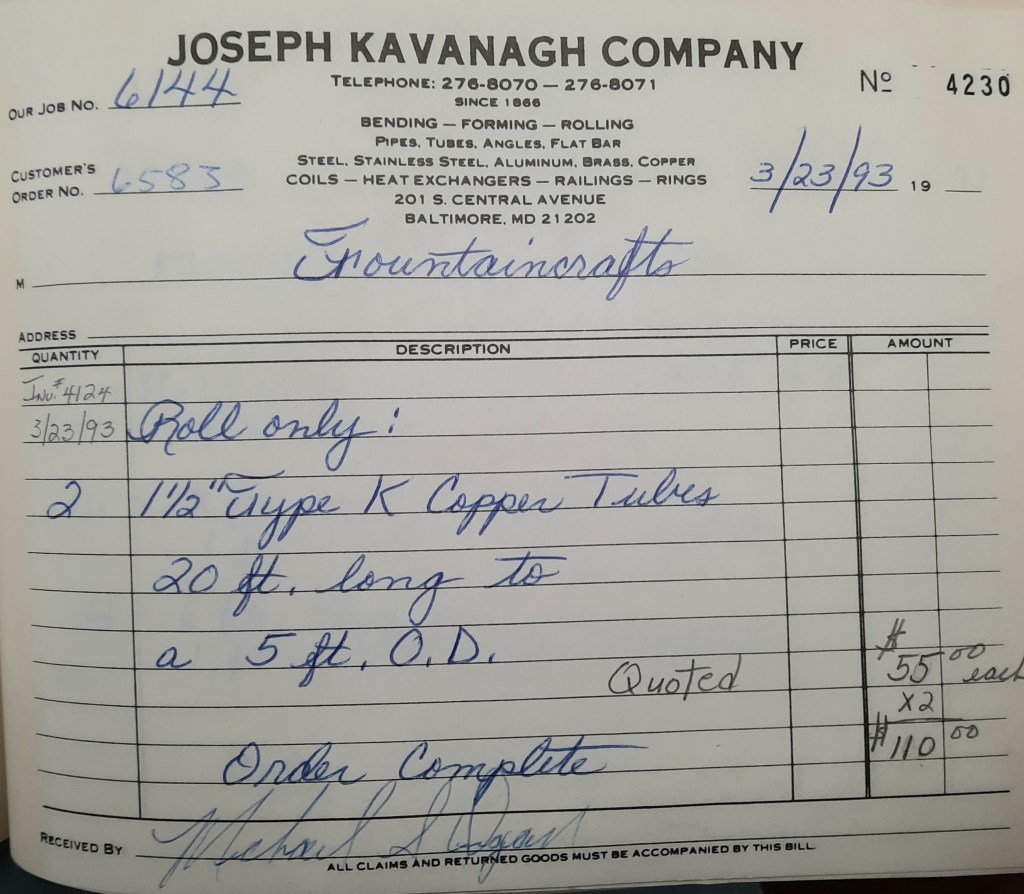 JOSEPH KAVANAGH COMPANY
TELEPHONE: 276-8070 — 276-8071
Nº 4230
OUR JOB NO. 6144
SINCE 1866
BENDING — FORMING — ROLLING
PIPES, TUBES, ANGLES, FLAT BAR
STEEL, STAINLESS STEEL, ALUMINUM, BRASS, COPPER
CUSTOMER'S ORDER NO. 6583
COILS — HEAT EXCHANGERS — RAILINGS — RINGS
3/23/93 19
201 S. CENTRAL AVENUE
BALTIMORE, MD 21202
M Fountaincrafts
ADDRESS
QUANTITY DESCRIPTION PRICE AMOUNT
Inv.# 4124
3/23/93 Roll only:
2 1½" Type K Copper Tubes
20 ft. long to
a 5 ft. O.D.
Quoted $55.00 each
x2
$110.00
Order Complete
RECEIVED BY Michael S
ALL CLAIMS AND RETURNED GOODS MUST BE ACCOMPANIED BY THIS BILL